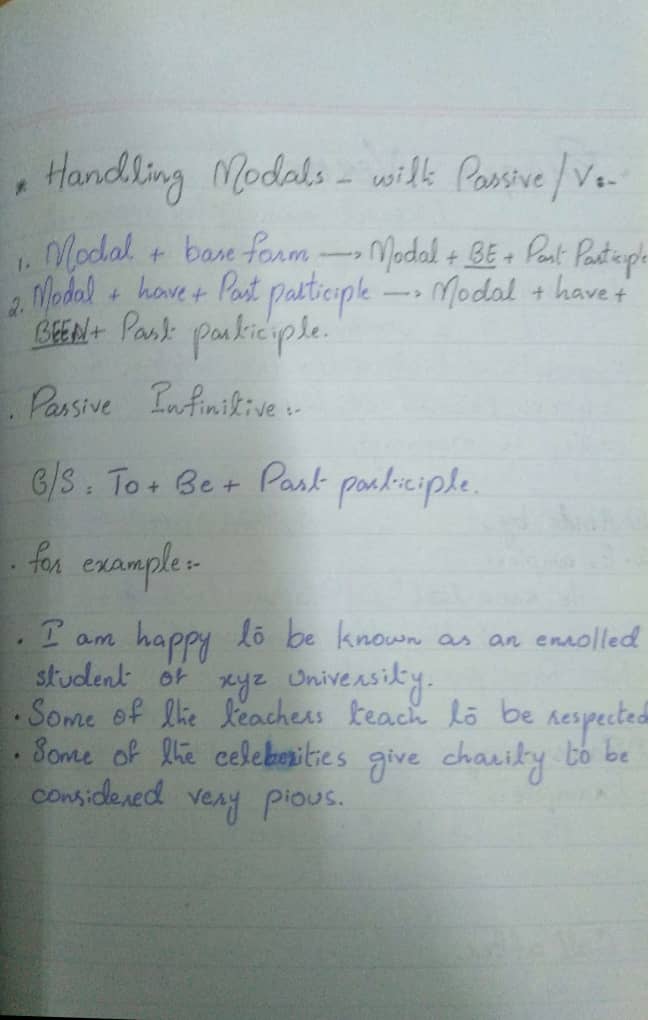 * Handling Modals - with Passive/V:-
1. Modal + base form → Modal + BE + Past Participle
2. Modal + have + Past participle → Modal + have +
BEEN + Past participle.
. Passive Infinitive :-
G/S : To + Be + Past participle.
. for example:-
. I am happy to be known as an enrolled
student of xyz University.
. Some of the teachers teach to be respected
. Some of the celeberities give charity to be
considered very pious.